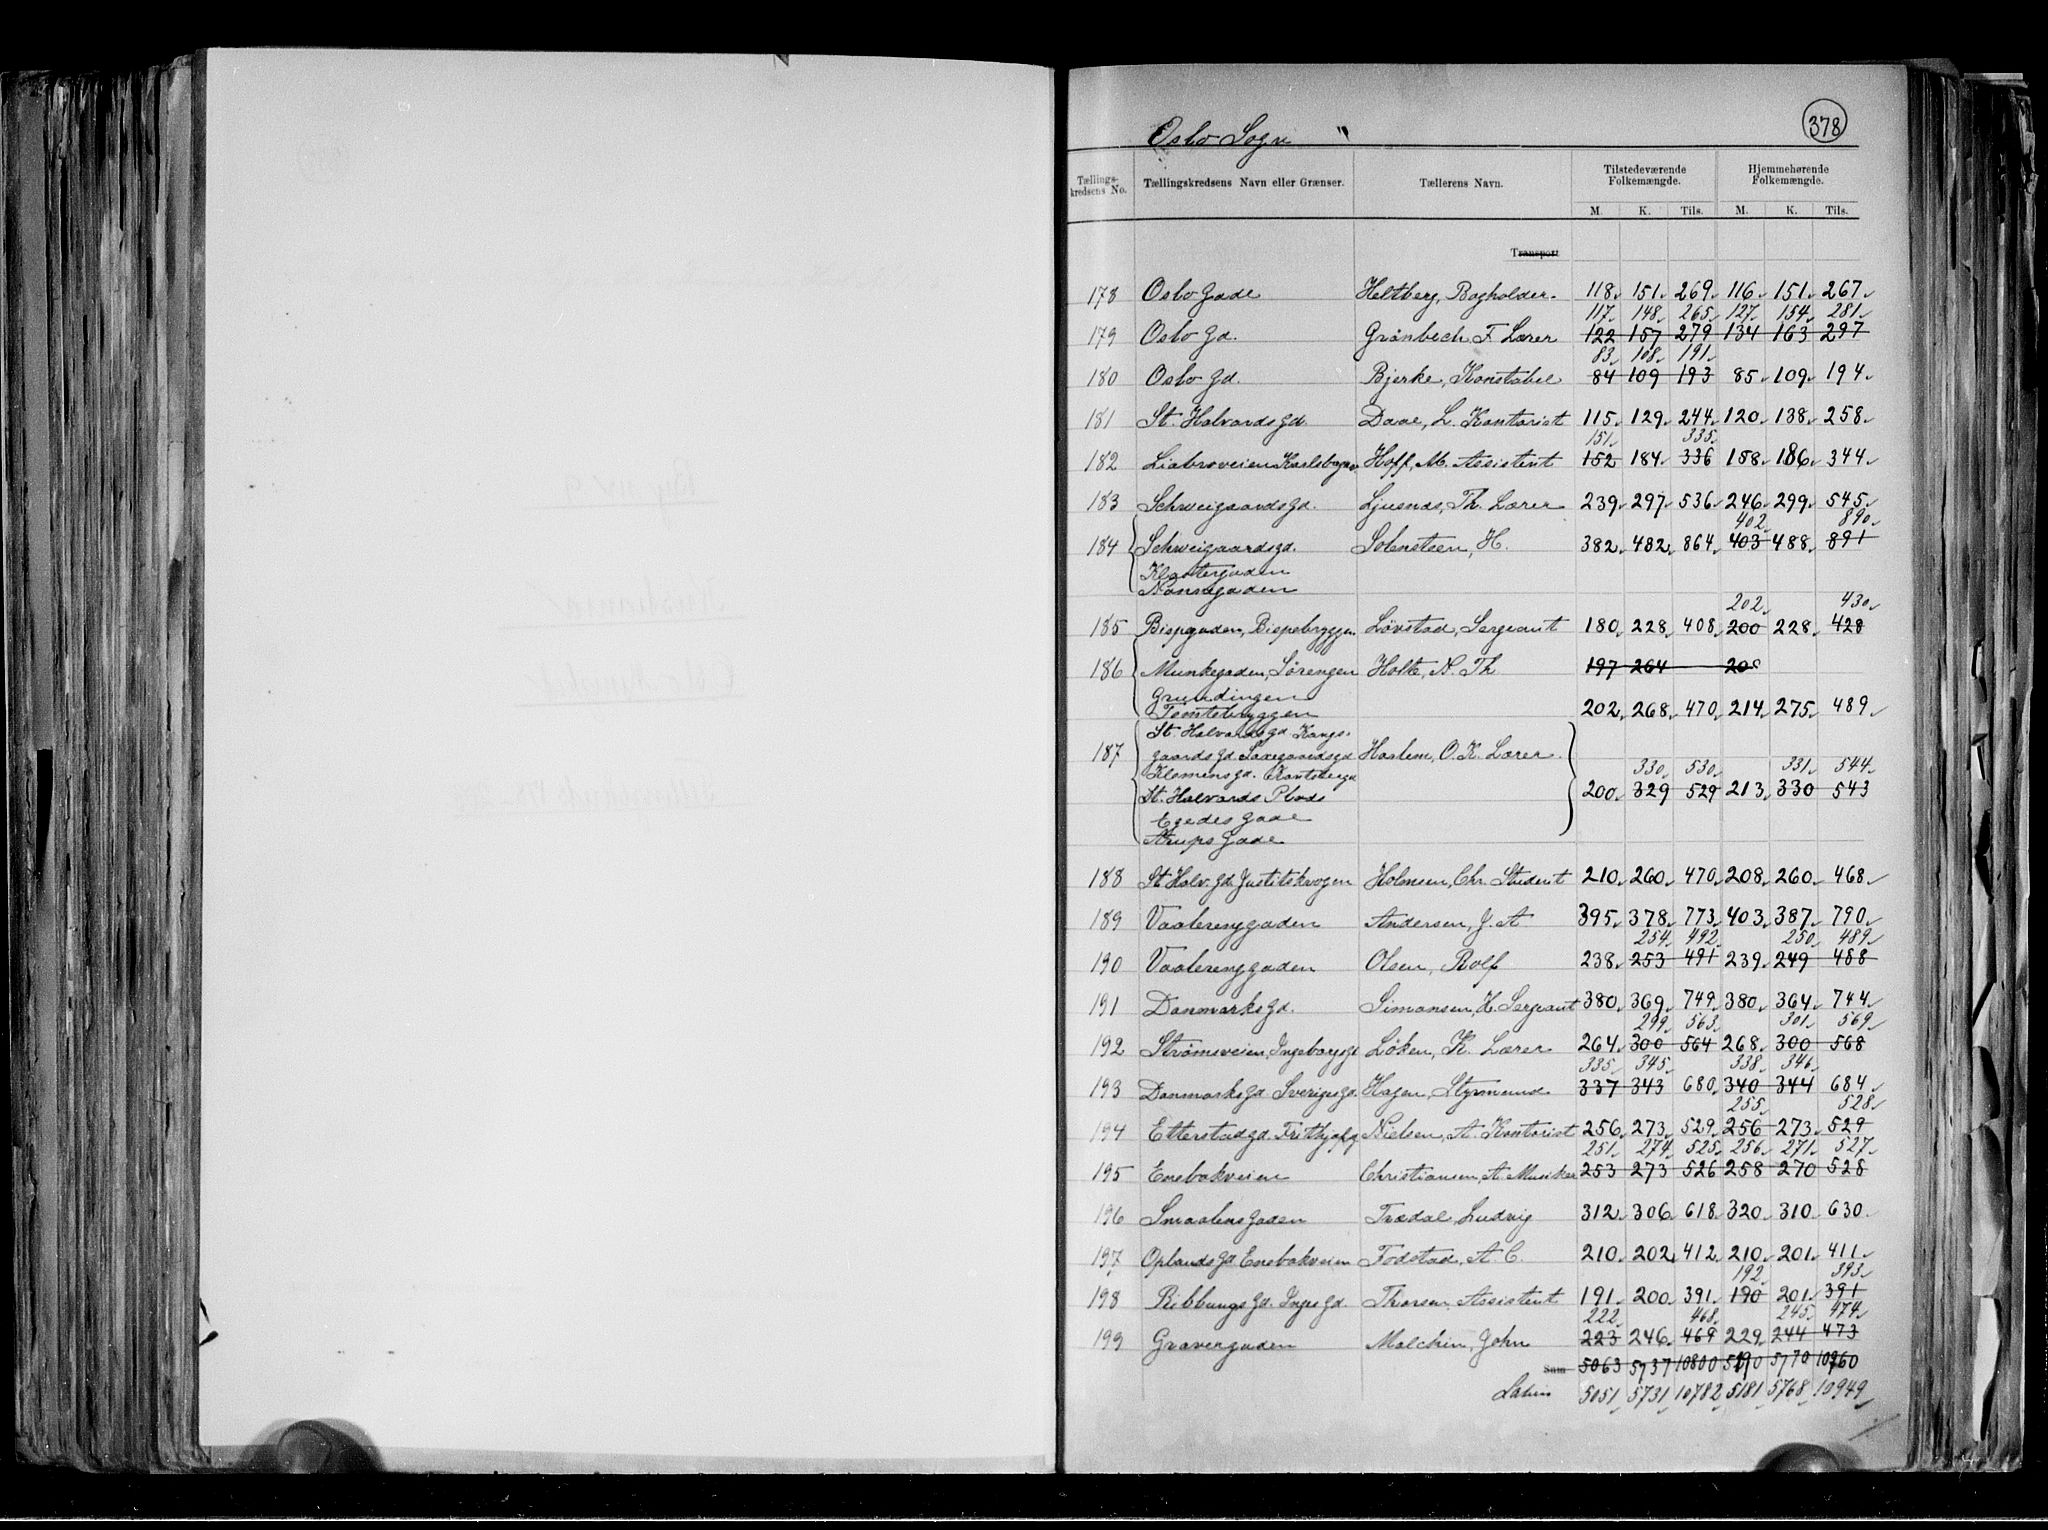 378
Oslo Sogn "
Tællings-kredsens No. Tællingskredsens Navn eller Grænser. Tællerens Navn. Tilstedeværende Folkemængde. Hjemmehørende Folkemængde.
M. K. Tils. M. K. Tils.
Transport
178 Oslo Gade Heltberg, Bogholder. 118 151 269 116 151 267
117 148 265 127 154 281
179 Oslo Gd. Grønbech F. Lærer 122 157 279 134 163 297
83 108 191
180 Oslo Gd. Bjerke, Konstabel 84 109 193 85 109 194
181 St. Halvards Gd. Daae, L. Kontorist 115 129 244 120 138 258
151 335
182 Liabroveien Karlsborgv Hoff, M. Assistent 152 184 336 158 186 344
183 Schweigaardsgd. Ljusnes, Th. Lærer 239 297 536 246 299 545
402 890
184 Schweigaardsgd. Solensteen, H. 382 482 864 403 488 891
Klostergaden
Nonnegaden
202 430
185 Bispegaden, Bispebryggen Løvstad, Sergeant 180 228 408 200 228 428
186 Munkegaden, Sørengen Holte, N. Th. 197 264 208
Grundingen
Tomtebryggen 202 268 470 214 275 489
St. Halvards Gd Kongs-
187 gaards Gd Saxegaardsgd Haslem, O. K. Lærer
Klemensgd. 330 530 331 544
St. Halvards Plads 200 329 529 213 330 543
Egedes Gade
Arups Gade
188 St Halv. Gd. Justitskrogen Holmsen, Chr. Student 210 260 470 208 260 468
189 Vaalerenggaden Andersen, J. A. 395 378 773 403 387 790
254 492 250 489
190 Vaalerenggaden Olsen, Rolf 238 253 491 239 249 488
191 Danmarks Gd. Simonsen, H. Sergeant 380 369 749 380 364 744
299 563 301 569
192 Strømsveien, Ingeborgsgd Løken, K. Lærer 264 300 564 268 300 568
335 345 338 346
193 Danmarks Gd Sveriges Gd. Hagen, Styrmand 337 343 680 340 344 684
255 528
194 Etterstadgd. Frithjofsg Nielsen, A. Kontorist 256 273 529 256 273 529
251 274 525 256 271 527
195 Enebakveien Christiansen, A. Musiker 253 273 526 258 270 528
196 Smaalens Gaden Trædal, Ludvig 312 306 618 320 310 630
197 Oplands Gd Enebakveien Fodstad, A. C. 210 202 412 210 201 411
192 393
198 Ribbungs Gd. Inges Gd. Thorsen, Assistent 191 200 391 190 201 391
222 468 245 474
199 Gravergaden Malchin, John 223 246 469 229 244 473
Sum 5063 5737 10800 5190 5770 10960
Latus 5051 5731 10782 5181 5768 10949